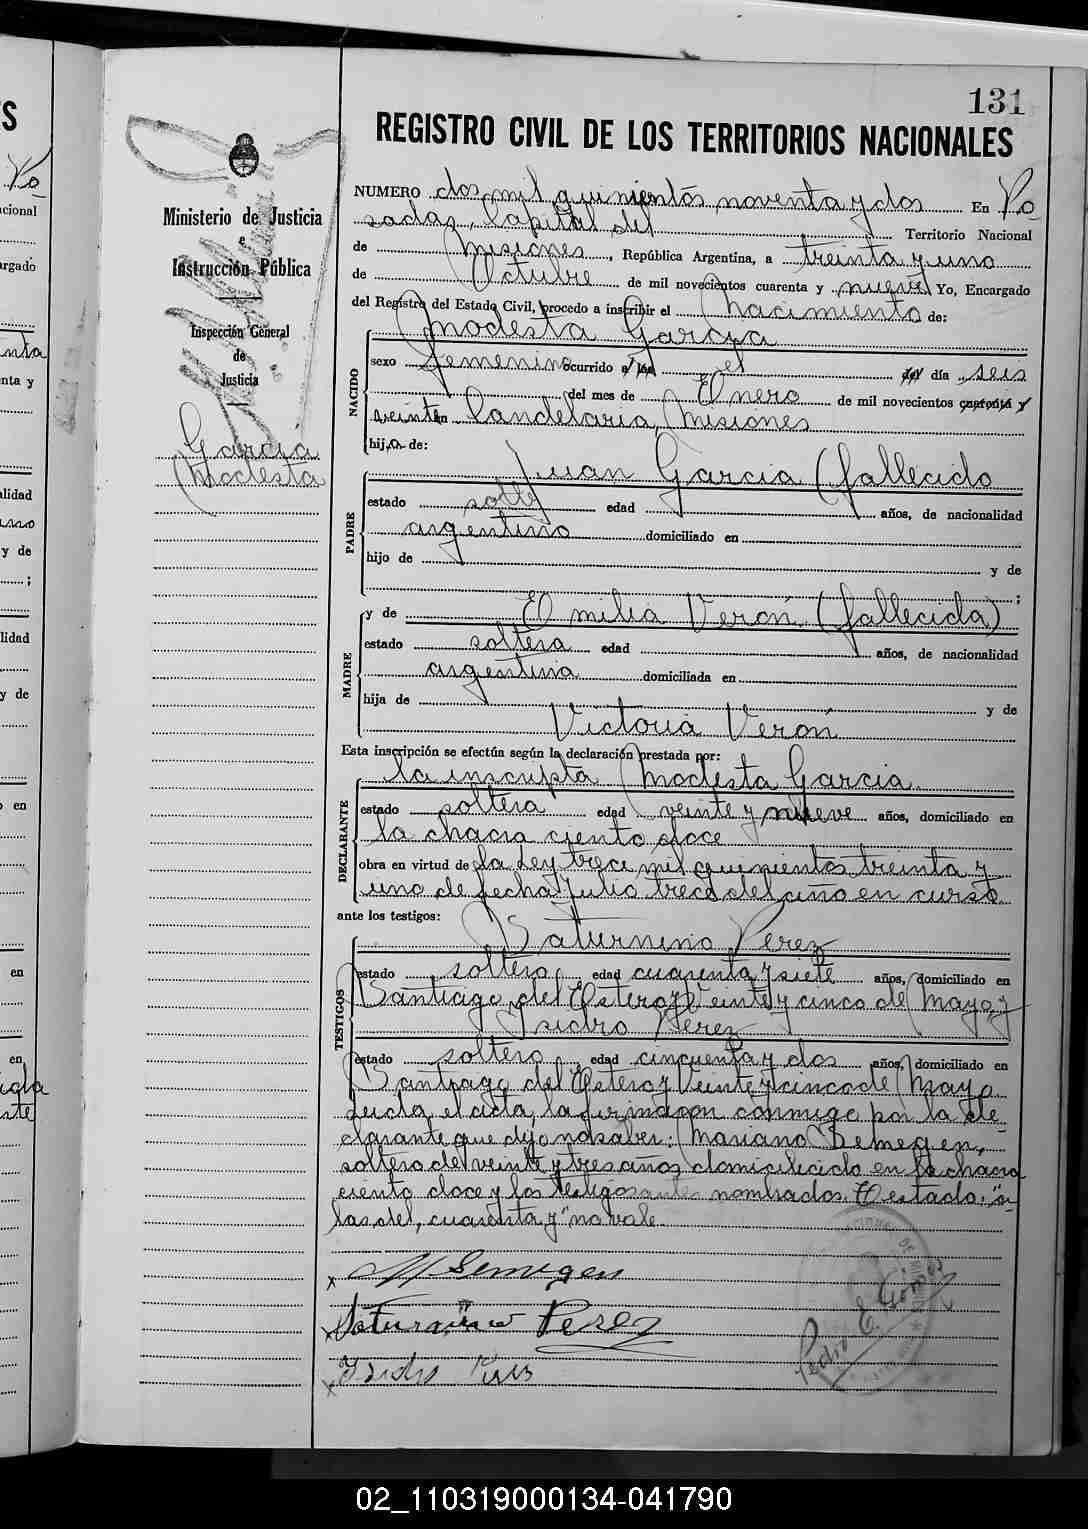 131
REGISTRO CIVIL DE LOS TERRITORIOS NACIONALES
Ministerio de Justicia
e
Instrucción Pública
Inspección General
de
Justicia
Garcia
Modesta
NUMERO dos mil quinientos noventa y dos En Po
sadas, Capital del Territorio Nacional
de Misiones, República Argentina, a treinta y uno
de Octubre de mil novecientos cuarenta y nueve Yo, Encargado
del Registro del Estado Civil, procedo a inscribir el nacimiento de:
Modesta Garcia
NACIDO
sexo femenino ocurrido a las el del día seis
del mes de Enero de mil novecientos cuarenta y
veinte en Candelaria, Misiones
hija de:
PADRE
Juan Garcia (fallecido
estado solt edad años, de nacionalidad
argentino domiciliado en
hijo de y de
;
MADRE
y de Emilia Verón (fallecida)
estado soltera edad años, de nacionalidad
argentina domiciliada en
hija de y de
Victoria Verón
Esta inscripción se efectúa según la declaración prestada por:
DECLARANTE
la inscripta Modesta Garcia
estado soltera edad veinte y nueve años, domiciliado en
la chacra ciento doce
obra en virtud de la Ley trece mil quinientos treinta y
uno de fecha Julio trece del año en curso
ante los testigos:
TESTIGOS
Saturnino Perez
estado soltero edad cuarenta y siete años, domiciliado en
Santiago del Estero y Veinte y cinco de Mayo, y
Isidro Perez
estado soltero edad cincuenta y dos años, domiciliado en
Santiago del Estero y Veinte y cinco de Mayo
Leida el acta, la firmaron conmigo por la de
clarante que dijo no saber: Mariano Semegen,
soltero de veinte y tres años domiciliado en la chacra
ciento doce y los testigos antes nombrados. Testado: "a
las del, cuarenta y" no vale.
x M Semegen
x Saturnino Perez
x Isidro
Pedro E.
02_110319000134-041790